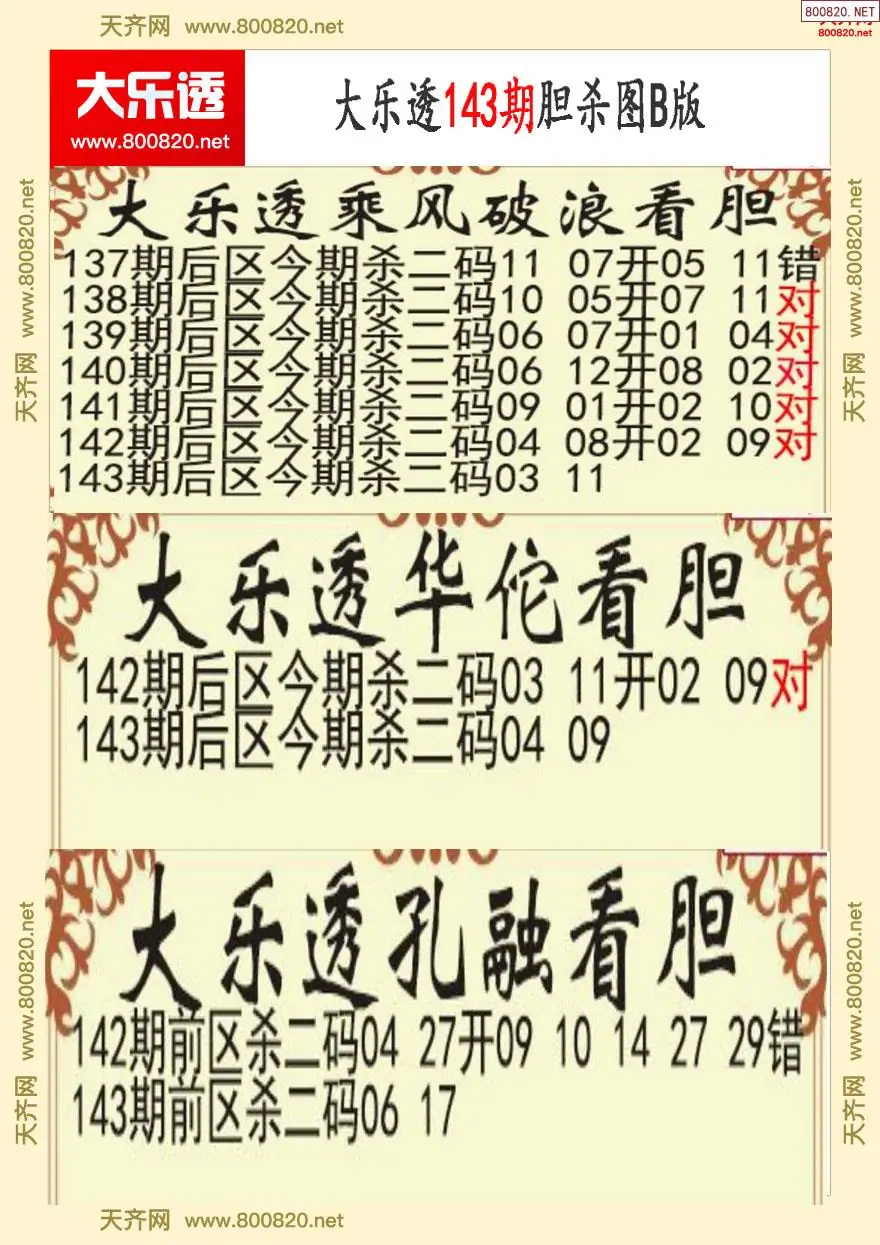 天齐网 www.800820.net
800820.NET
800820.net
大乐透
www.800820.net
大乐透143期胆杀图B版
大乐透乘风破浪看胆
137期后区今期杀二码11 07开05 11错
138期后区今期杀二码10 05开07 11对
139期后区今期杀二码06 07开01 04对
140期后区今期杀二码06 12开08 02对
141期后区今期杀二码09 01开02 10对
142期后区今期杀二码04 08开02 09对
143期后区今期杀二码03 11
天齐网 www.800820.net
天齐网 www.800820.net
大乐透华佗看胆
142期后区今期杀二码03 11开02 09对
143期后区今期杀二码04 09
大乐透孔融看胆
142期前区杀二码04 27开09 10 14 27 29错
143期前区杀二码06 17
天齐网 www.800820.net
天齐网 www.800820.net
天齐网 www.800820.net